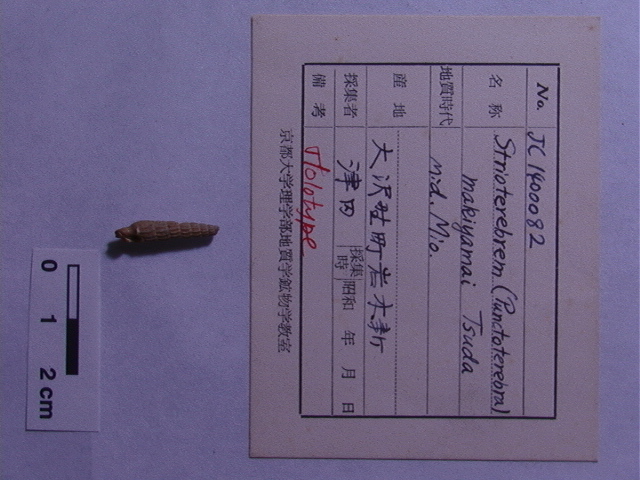 No. JC1400082
名称 Strioterebrem (Punctoterebra)
makiyamai Tsuda
地質時代 mid. Mio.
産地 大沢 町岩木新
採集者 津田 採集時 昭和 年 月 日
備考 Holotype
京都大学理学部地質学鉱物学教室
0 1 2 cm